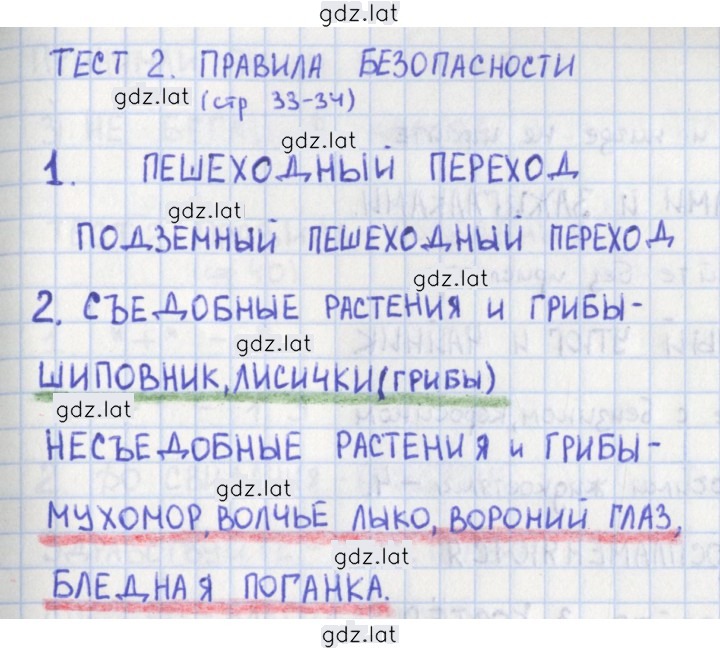 gdz.lat
ТЕСТ 2. ПРАВИЛА БЕЗОПАСНОСТИ
gdz.lat (стр 33-34)
gdz.lat
1. ПЕШЕХОДНЫЙ ПЕРЕХОД
gdz.lat
ПОДЗЕМНЫЙ ПЕШЕХОДНЫЙ ПЕРЕХОД
gdz.lat
2. СЪЕДОБНЫЕ РАСТЕНИЯ И ГРИБЫ-
gdz.lat
ШИПОВНИК, ЛИСИЧКИ (ГРИБЫ)
gdz.lat
НЕСЪЕДОБНЫЕ РАСТЕНИЯ И ГРИБЫ-
gdz.lat
МУХОМОР, ВОЛЧЬЕ ЛЫКО, ВОРОНИЙ ГЛАЗ,
gdz.lat
БЛЕДНАЯ ПОГАНКА.
gdz.lat